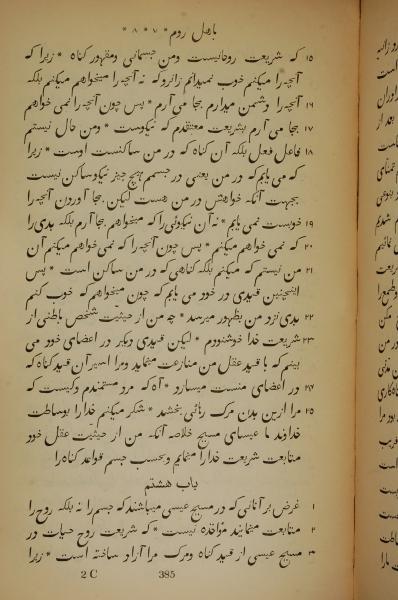 باهل روم * ٧ * ٨ *
١٥ که شریعت روحانیست ومن جسمانی ومقهور کناه * زیرا که
آنچه را میکنم خوب نمیدانم زانرو که نه آنچه را میخواهم میکنم بلکه
١٦ آنچه را دشمن میدارم بجا می آرم * پس چون آنچه را نمی خواهم
١٧ بجا می آرم بشریعت معتقدم که نیکوست * ومن حال نیستم
١٨ فاعل فعل بلکه آن کناه که در من ساکنست اوست * زیرا
که می یابم که در من یعنی در جسمم هیچ چیز نیکو ساکن نیست
بجهت آنکه خواهش در من هست لیکن بجا آوردن آنچه را
١٩ خوبست نمی یابم * نه آن نیکوئی را که میخواهم بجا آرم بلکه بدی را
٢٠ که نمی خواهم میکنم * پس چون آنچه را که نمی خواهم میکنم آن
٢١ من نیستم که میکنم بلکه کناهی که در من ساکن است * پس
اینچنین قیدی در خود می یابم که چون میخواهم که خوب کنم
٢٢ بدی نزد من بظهور میرسد * چه من از حیثیت شخص باطنی از
٢٣ شریعت خدا خوشنودم * لیکن قیدی دیکر در اعضای خود می
بینم که با قید عقل من منازعت مینماید ومرا اسیر آن قید کناه که
٢٤ در اعضای منست میسازد * آه که مرد مستمندم وکیست که
٢٥ مرا ازین بدن مرک رهائی بخشد * شکر میکنم خدا را بوساطت
خداوند ما عیسای مسیح خلاصه آنکه من از حیثیت عقل خود
متابعت شریعت خدا را مینمایم وبحسب جسم قواعد کناه را
باب هشتم
١ غرض بر آنانی که در مسیح عیسی میباشند که جسم را نه بلکه روح را
٢ متابعت مینمایند مؤاخذه نیست * که شریعت روح حیات در
٣ مسیح عیسی از قید کناه ومرک مرا آزاد ساخته است * زیرا
2 C 385